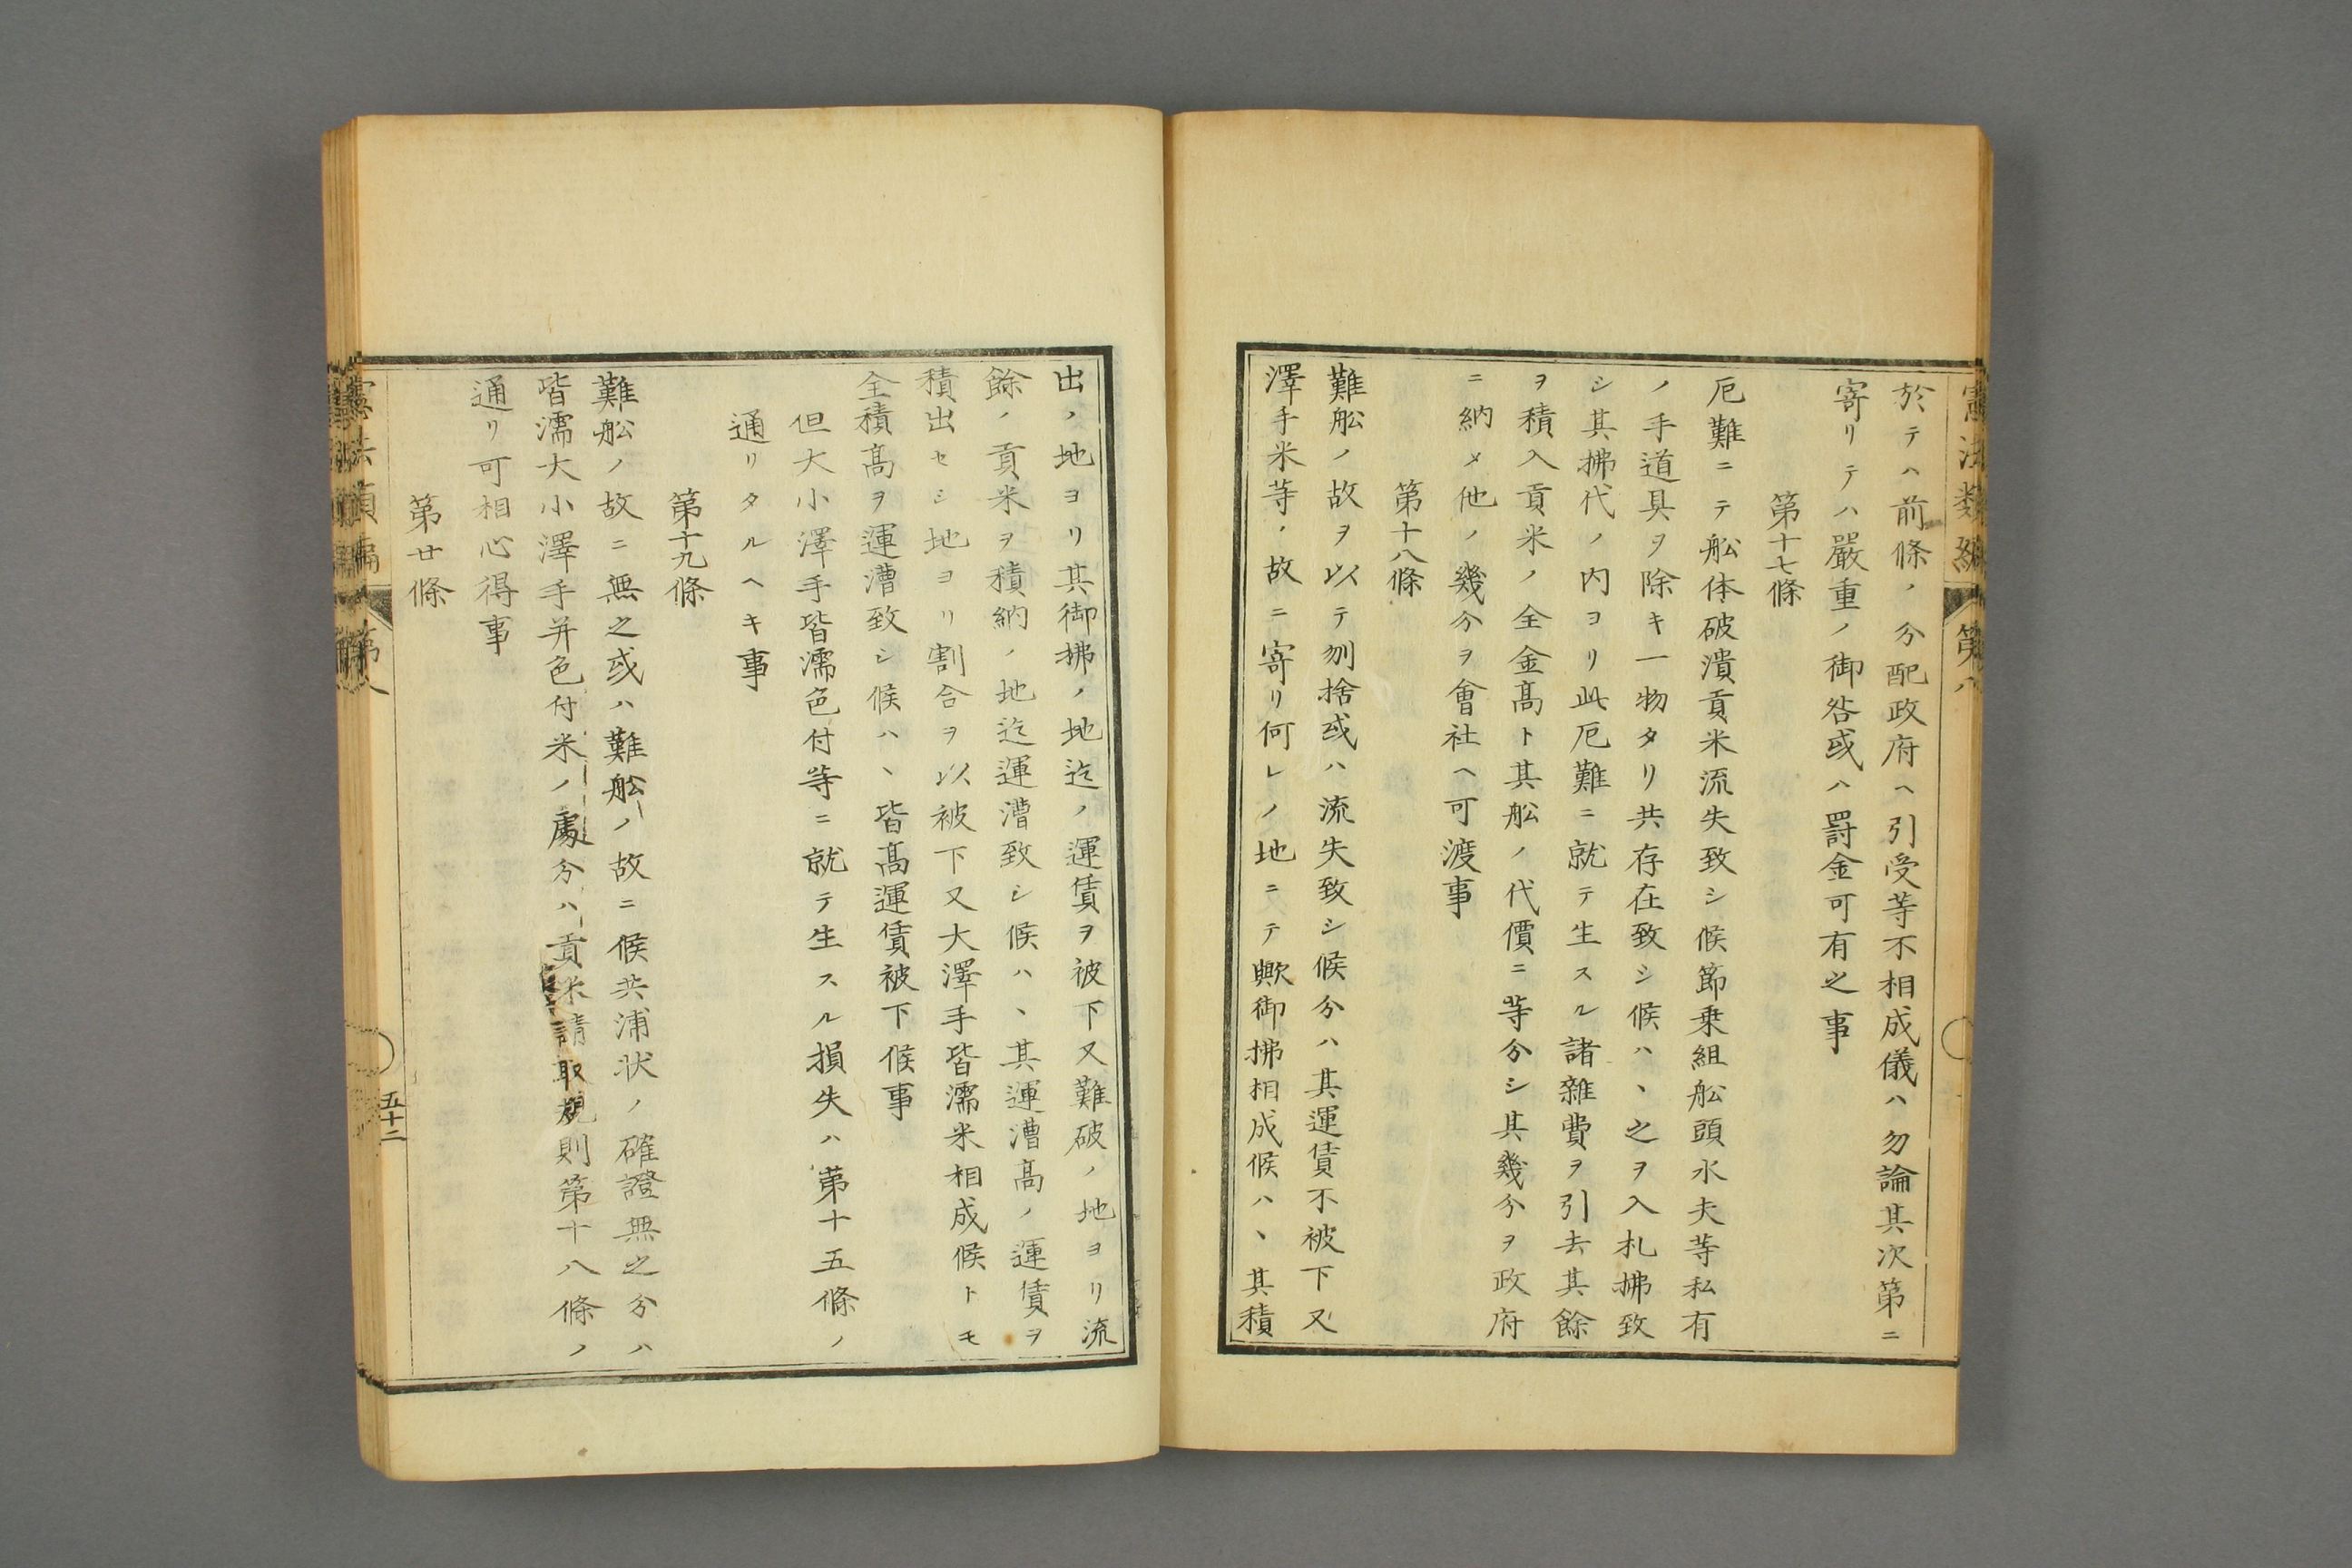 憲法類編 第八
於テハ前條ノ分配政府ヘ引受等不相成儀ハ勿論其次第ニ
寄リテハ嚴重ノ御咎或ハ罸金可有之事
第十七條
厄難ニテ舩体破潰貢米流失致シ候節乗組舩頭水夫等私有
ノ手道具ヲ除キ一物タリ共存在致シ候ハヽ之ヲ入札拂致
シ其拂代ノ内ヨリ此厄難ニ就テ生スル諸雜費ヲ引去其餘
ヲ積入貢米ノ全金髙ト其舩ノ代價ニ等分シ其幾分ヲ政府
ニ納メ他ノ幾分ヲ會社ヘ可渡事
第十八條
難舩ノ故ヲ以テ刎捨或ハ流失致シ候分ハ其運賃不被下又
澤手米等ノ故ニ寄リ何レノ地ニテ歟御拂相成候ハヽ其積
出ノ地ヨリ其御拂ノ地迄ノ運賃ヲ被下又難破ノ地ヨリ流
餘ノ貢米ヲ積納ノ地迄運漕致シ候ハヽ其運漕髙ノ運賃ヲ
積出セシ地ヨリ割合ヲ以被下又大澤手皆濡米相成候トモ
全積髙ヲ運漕致シ候ハヽ皆髙運賃被下候事
但大小澤手皆濡色付等ニ就テ生スル損失ハ第十五條ノ
通リタルヘキ事
第十九條
難舩ノ故ニ無之或ハ難舩ノ故ニ候共浦状ノ確證無之分ハ
皆濡大小澤手并色付米ノ處分ハ貢米請取規則第十八條ノ
通リ可相心得事
第廿條
憲法類編 第八 五十二